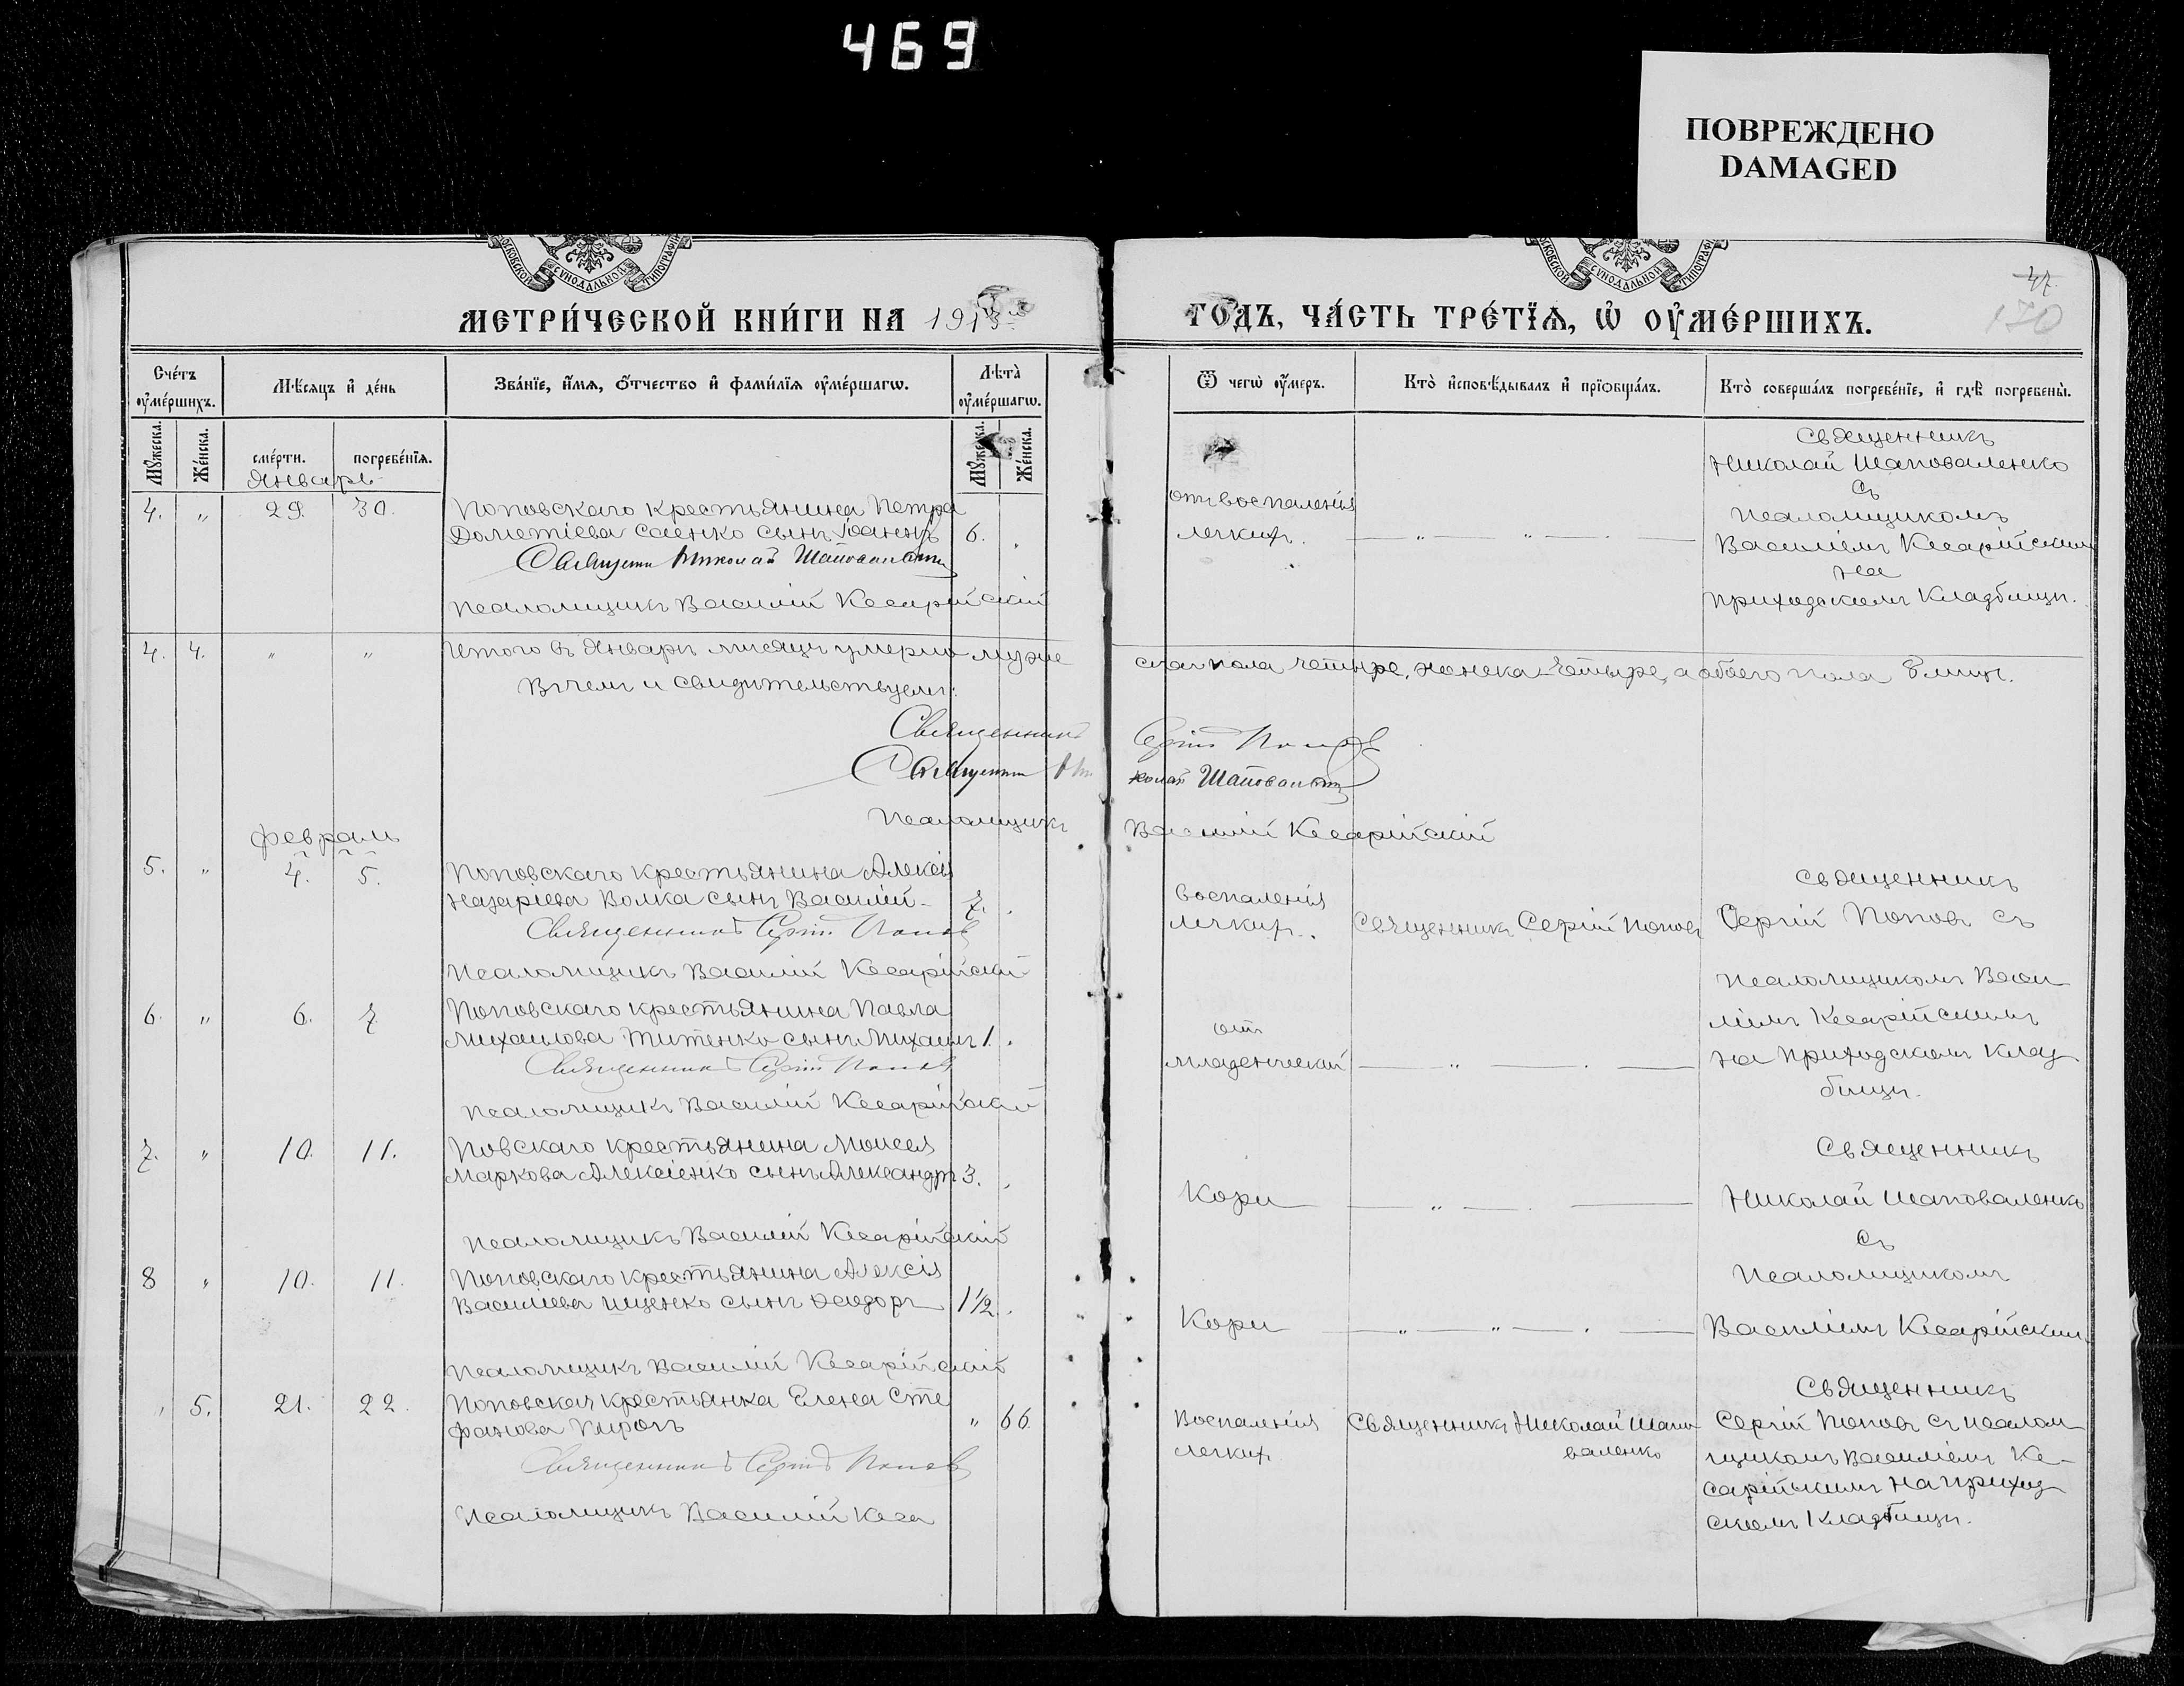 469
ПОВРЕЖДЕНО
DAMAGED
МЕТРИ́ЧЕСКОЙ КНИ́ГИ НА 1913
ГО́ДЪ, ЧА́СТЬ ТРЕ́ТЇѦ, Ѡ҆ ОУ҆МЕ́РШИХЪ.
47.
170
Сче́тъ оу҆ме́ршихъ.
Мѣ́сяцъ и҆ де́нь
Зва́нїе, и҆́мѧ, ѻ҆́тчество и҆ фами́лїѧ оу҆ме́ршагѡ.
Лѣта̀ оу҆ме́ршагѡ.
Ѿ чегѡ̀ оу҆́меръ.
Кто̀ и҆сповѣ́дывалъ и҆ прїѻбща́лъ.
Кто̀ соверша́лъ погребе́нїе, и҆ гдѣ̀ погребены̀.
Мꙋ́жеска.
Же́нска.
сме́рти.
погребе́нїѧ.
Мꙋ́жеска.
Же́нска.
Январь
4. " 29. 30.
Поповскаго крестьянина Петра
Дометіева Саенко сынъ Іоаннъ 6.
Священникъ Николай Шаповаленко
Псаломщикъ Василій Кесарійскій
отъ воспаленія
легкихъ.
Священникъ
Николай Шаповаленко
съ
Псаломщикомъ
Василіемъ Кесарійскимъ
на
приходскомъ кладбищѣ.
4. 4. " "
Итого въ Январѣ мѣсяцѣ умерло муже
скаго пола четыре, женска четыре, а обоего пола 8мич.
Въ чемъ и свидѣтельствуемъ:
Священникъ Сергій Поповъ
Священникъ Николай Шаповаленко
Псаломщикъ Василій Кесарійскій
Февраль
5. " 4. 5.
Поповскаго крестьянина Алексія
Назаріева Волка сынъ Василій 7.
Священникъ Сергій Поповъ
Псаломщикъ Василій Кесарійскій
воспаленія
легкихъ.
Священникъ Сергій Поповъ
Священникъ
Сергій Поповъ съ
Псаломщикомъ Васи
ліемъ Кесарійскимъ
на приходскомъ клад
бищѣ.
6. " 6. 7
Поповскаго крестьянина Павла
Михаилова Титенко сынъ Михаилъ 1.
Священникъ Сергій Поповъ
Псаломщикъ Василій Кесарійскій
отъ
младенческой
7. " 10. 11.
Повскаго крестьянина Моисея
Маркова Алексіенко сынъ Александръ 3.
Псаломщикъ Василій Кесарійскій
Кори
Священникъ
Николай Шаповаленко
съ
Псаломщикомъ
Василіемъ Кесарійскимъ
8 " 10. 11.
Поповскаго крестьянина Алексія
Василіева Ищенко сынъ Ѳеодоръ 1 1/2.
Псаломщикъ Василій Кесарійскій
Кори
" 5. 21. 22.
Поповская крестьянка Елена Сте
фанова " 66.
Священникъ Сергій Поповъ
Псаломщикъ Василій Кеса
Воспаленія
легкихъ
Священникъ Николай Шапо
валенко
Священникъ
Сергій Поповъ съ псалом
щикомъ Василіемъ Ке-
сарійскимъ на приход
скомъ кладбищѣ.